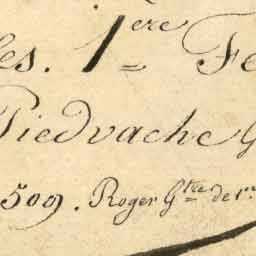 les. 1ère Fe
Piedvache G
509. Roger Gtte de 1re